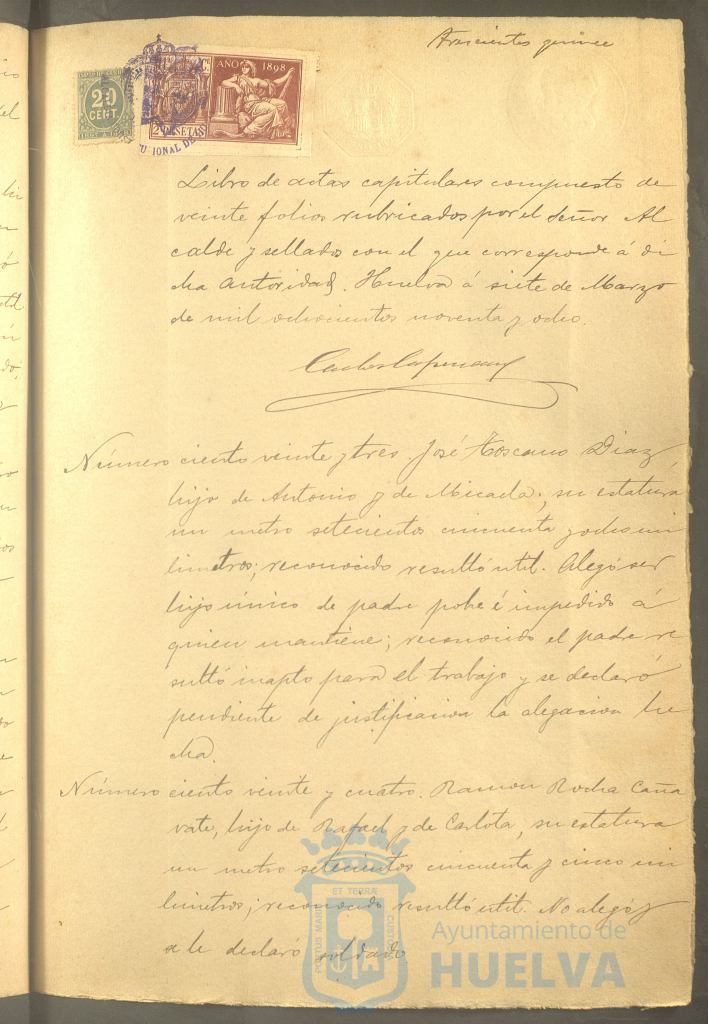 Trescientos quince
20
CENT.
AÑO 1898
2 PESETAS
Libro de actas capitulares compuesto de
veinte folios rubricados por el Señor Al
calde y sellados con el que corresponde á di
cha autoridad. Huelva á siete de Marzo
de mil ochocientos noventa y ocho.
Número ciento veinte y tres. José Toscano Diaz,
hijo de Antonio y de Micaela; su estatura
un metro setecientos cincuenta y ocho mi
limetros; reconocido resultó util. Alegó ser
hijo único de padre pobre é impedido á
quien mantiene; reconocido el padre re
sultó inapto para el trabajo y se declaró
pendiente de justificacion la alegacion he
cha.
Número ciento veinte y cuatro. Ramon Rocha Caña
vate, hijo de Rafael y de Carlota, su estatura
un metro setecientos cincuenta y cinco mi
limetros; reconocido resultó util. No alegó y
se le declaró soldado.
PORTUS MARIS ET TERRÆ CUSTODIA
Ayuntamiento de
HUELVA